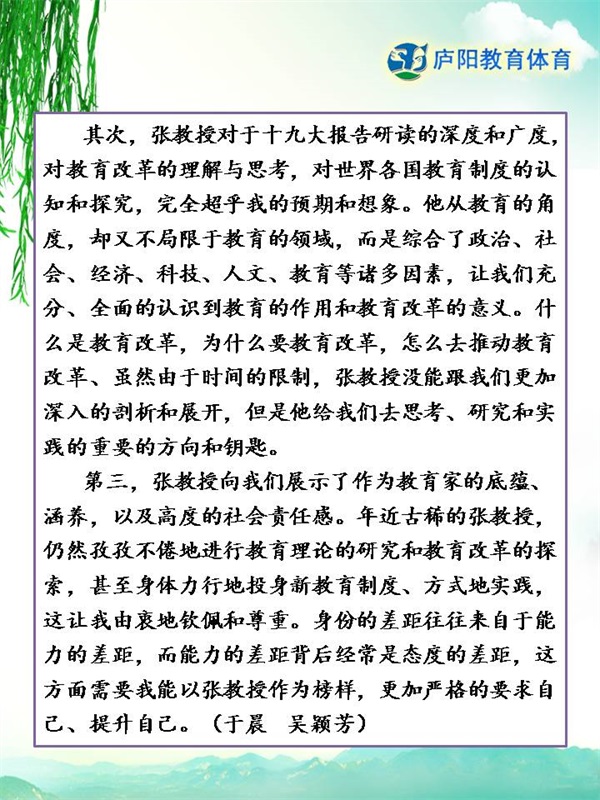 庐阳教育体育
其次，张教授对于十九大报告研读的深度和广度，
对教育改革的理解与思考，对世界各国教育制度的认
知和探究，完全超乎我的预期和想象。他从教育的角
度，却又不局限于教育的领域，而是综合了政治、社
会、经济、科技、人文、教育等诸多因素，让我们充
分、全面的认识到教育的作用和教育改革的意义。什
么是教育改革，为什么要教育改革，怎么去推动教育
改革、虽然由于时间的限制，张教授没能跟我们更加
深入的剖析和展开，但是他给我们去思考、研究和实
践的重要的方向和钥匙。
第三，张教授向我们展示了作为教育家的底蕴、
涵养，以及高度的社会责任感。年近古稀的张教授，
仍然孜孜不倦地进行教育理论的研究和教育改革的探
索，甚至身体力行地投身新教育制度、方式地实践，
这让我由衷地钦佩和尊重。身份的差距往往来自于能
力的差距，而能力的差距背后经常是态度的差距，这
方面需要我能以张教授作为榜样，更加严格的要求自
己、提升自己。（于晨　吴颖芳）